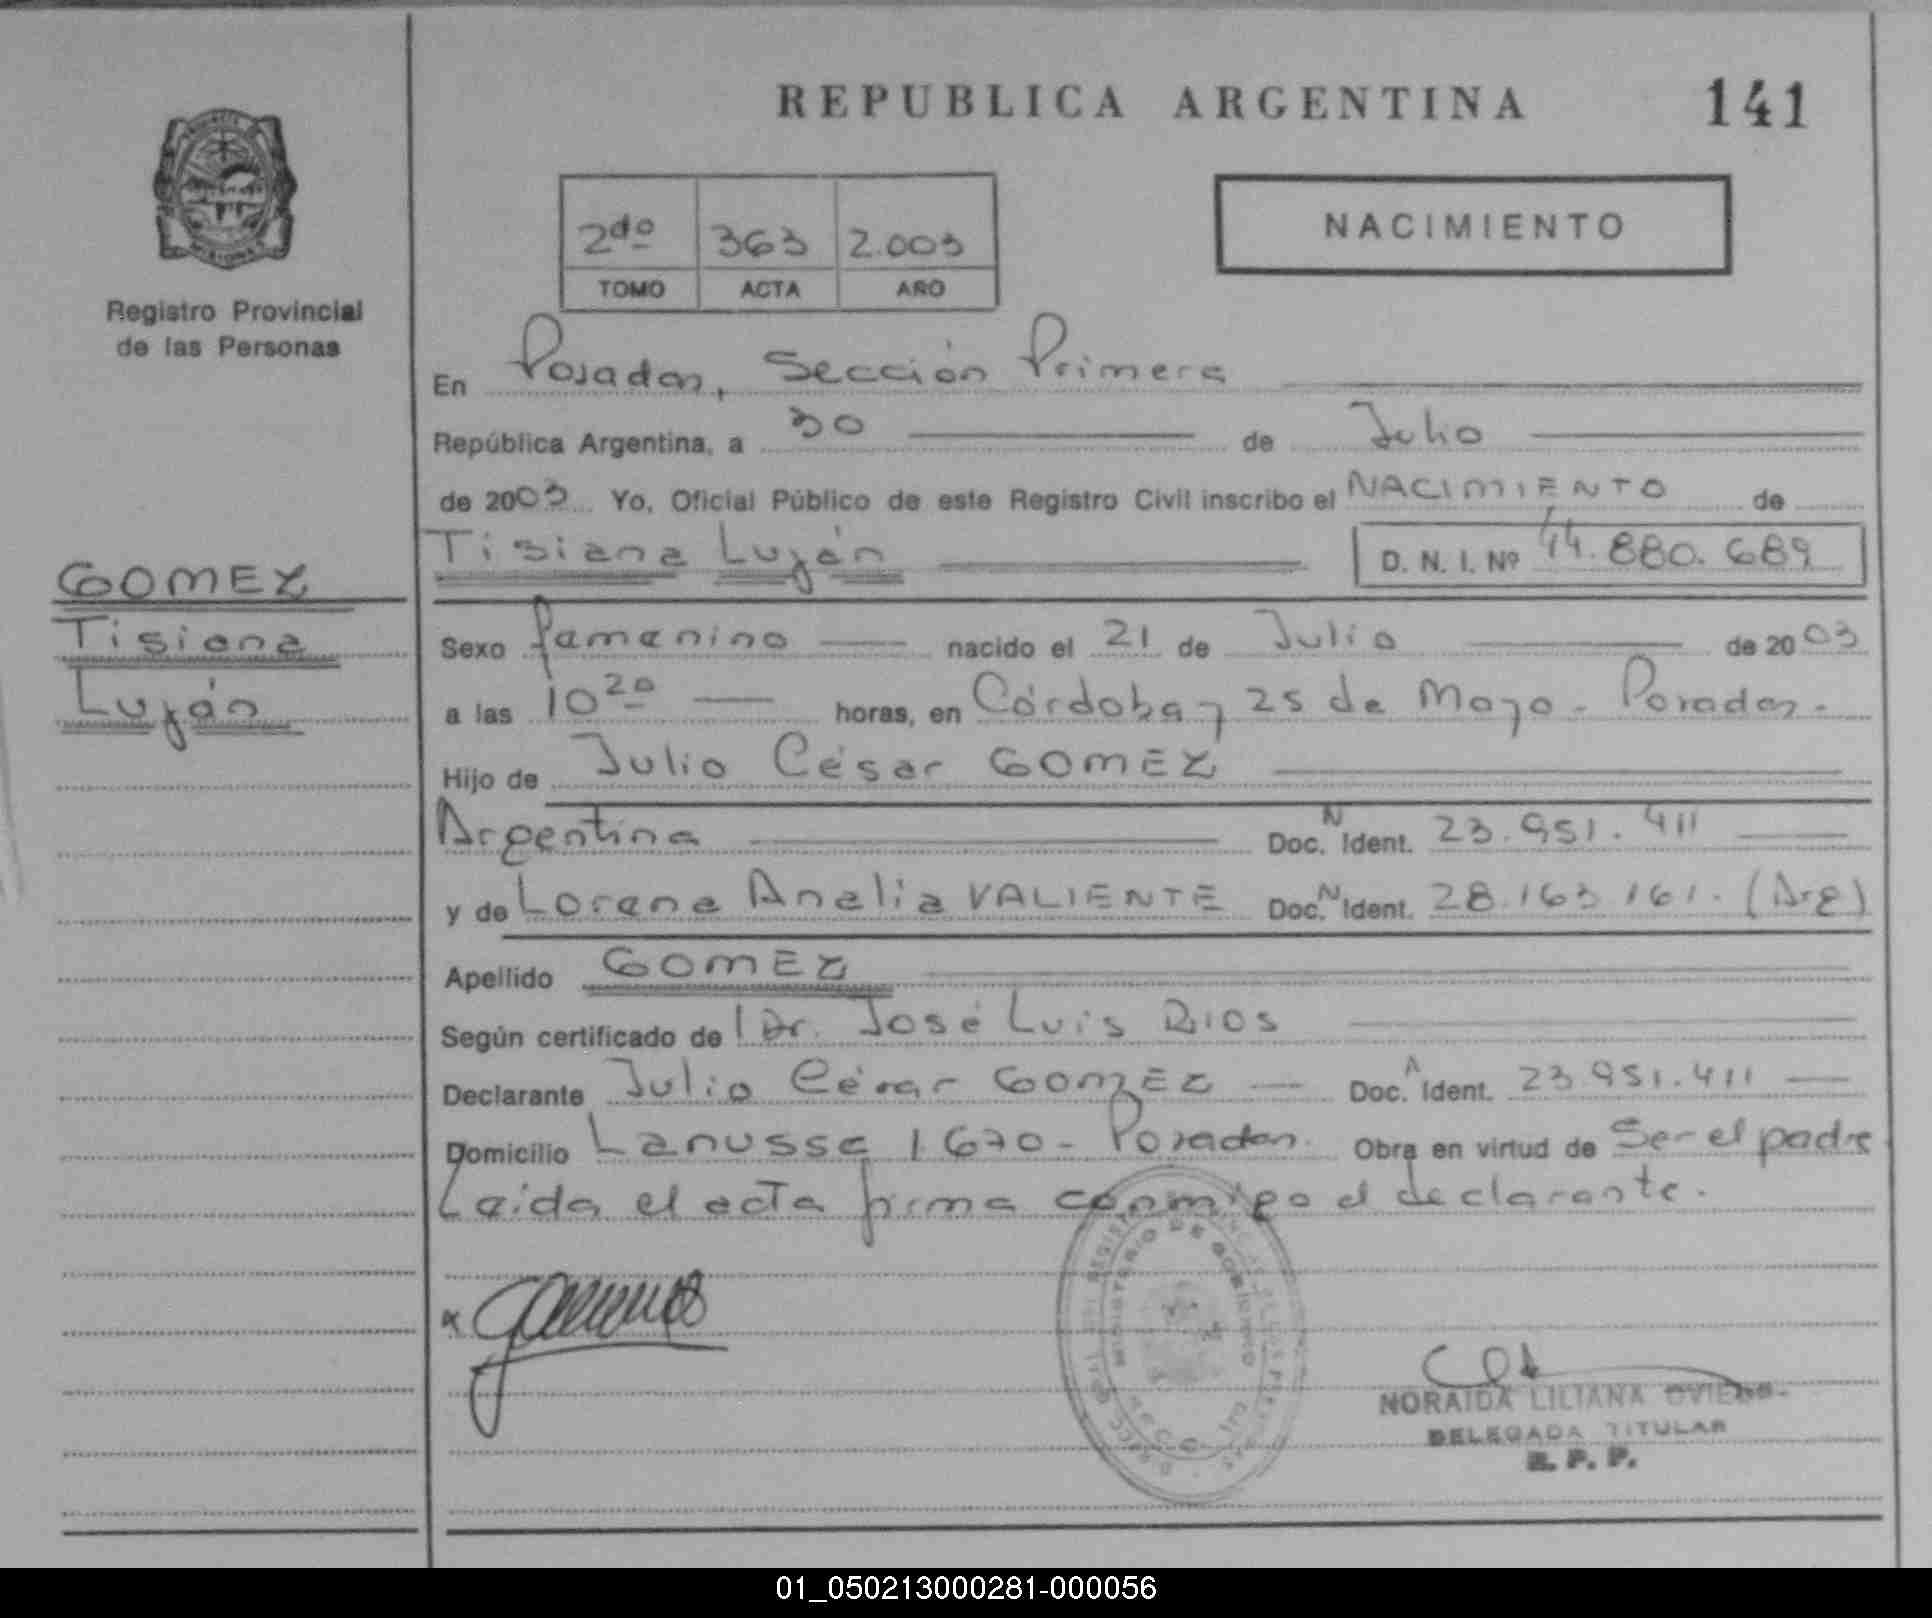 REPUBLICA ARGENTINA 141
2do 363 2.003
TOMO ACTA AÑO
NACIMIENTO
Registro Provincial
de las Personas
En Posadas, Sección Primera
República Argentina, a 30 de Julio
de 2003 Yo, Oficial Público de este Registro Civil inscribo el NACIMIENTO de
Tisiana Luján D. N. I. Nº 44.880.689
GOMEZ
Tisiana
Luján
Sexo famenino nacido el 21 de Julio de 2003
a las 10 20 horas, en Córdoba y 25 de Mayo - Posadas.
Hijo de Julio César GOMEZ
Argentina Doc. N Ident. 23.951.411
y de Lorena Analia VALIENTE Doc. N Ident. 28.163.161. (Arg)
Apellido GOMEZ
Según certificado de Dr. José Luis RIOS
Declarante Julio César GOMEZ Doc. Ident. 23.951.411
Domicilio Lanusse 1670 - Posadas. Obra en virtud de Ser el padre
Leida el acta firma conmigo el declarante.
MINISTERIO DE GOBIERNO
NORAIDA LILIANA OVIEDO
DELEGADA TITULAR
R. P. P.
01_050213000281-000056